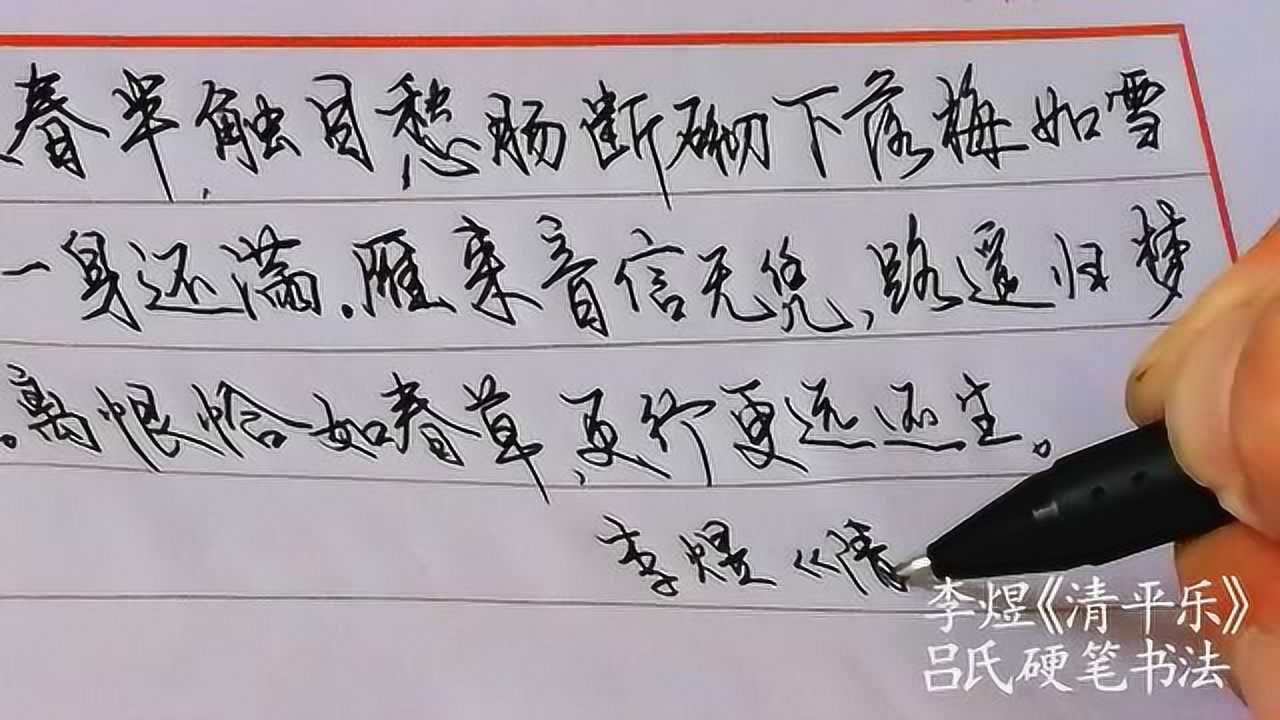 春半,触目愁肠断砌下落梅如雪
一身还满.雁来音信无凭,路遥归梦
。离恨恰如春草,更行更远还生。
李煜《清
李煜《清平乐》
吕氏硬笔书法